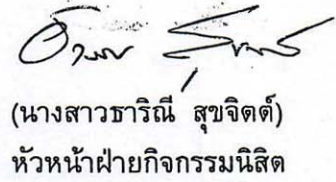 (นางสาวธาริณี สุขจิตต์)
หัวหน้าฝ่ายกิจกรรมนิสิต